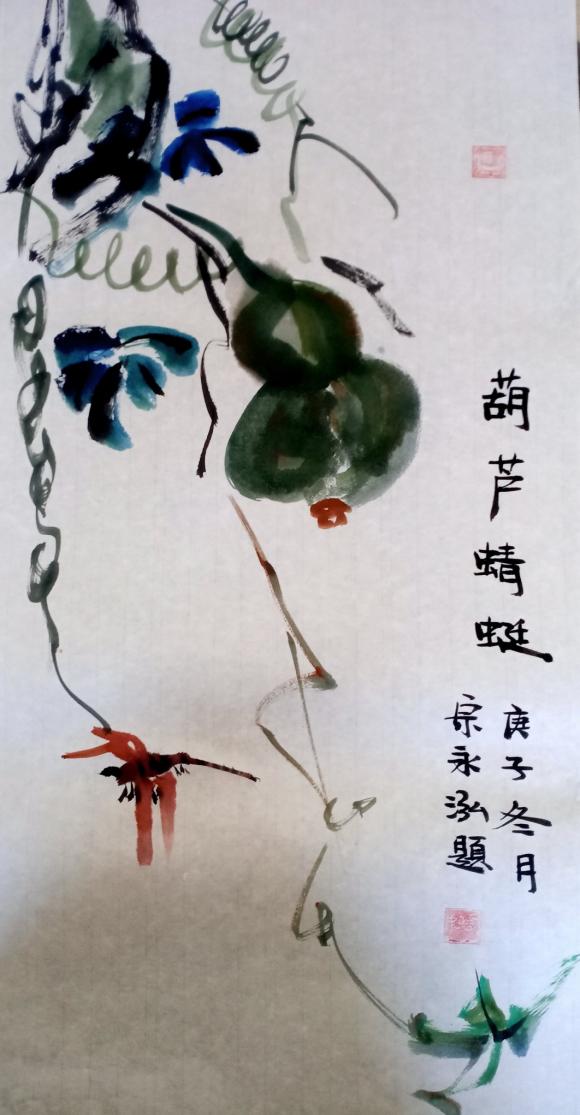 葫芦蜻蜓
庚子冬月
宗永泓题